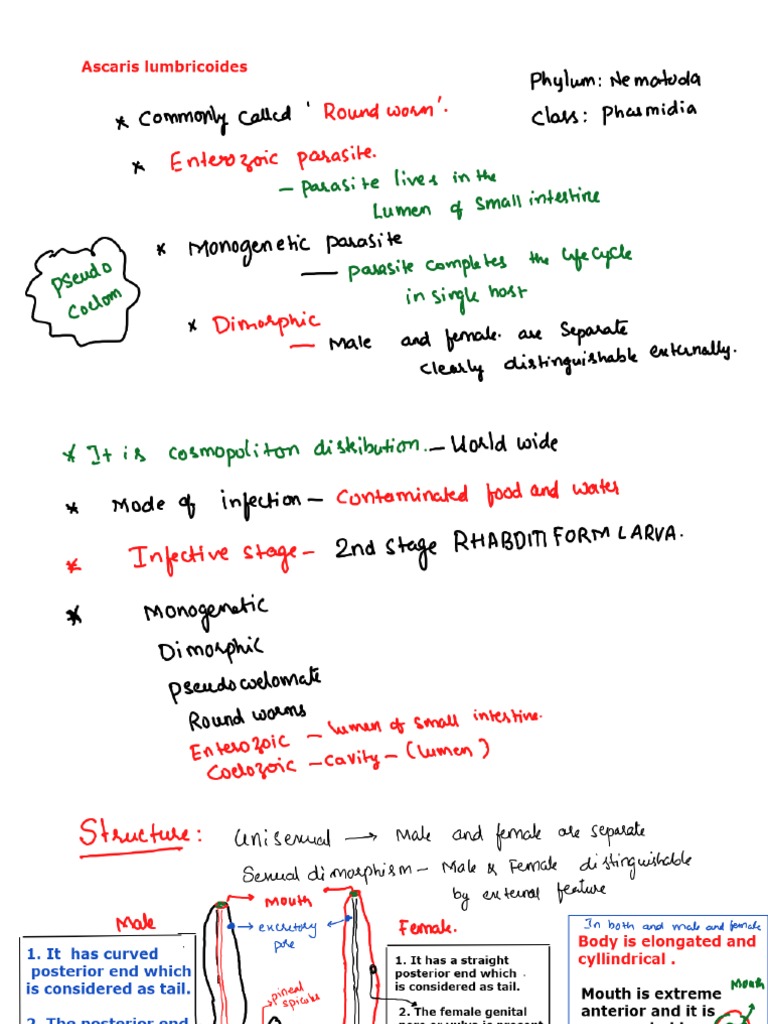 Ascaris lumbricoides
Phylum: Nematoda
Class: Phasmidia
* Commonly called 'Round worm'.
* Enterozoic parasite.
– Parasite lives in the
Lumen of small intestine
* Monogenetic parasite
— parasite completes the lifecycle
in single host
pseudo
coelom
* Dimorphic
— Male and female are separate
clearly distinguishable externally.
* It is cosmopoliton distribution. – World wide
* Mode of infection – Contaminated food and water
* Infective stage – 2nd stage RHABDITIFORM LARVA.
* Monogenetic
Dimorphic
Pseudocoelomate
Round worms
Enterozoic – lumen of small intestine.
Coelozoic – cavity – (lumen)
Structure: Unisexual → Male and female are separate
Sexual dimorphism – Male & Female distinguishable
by external feature
Male
Mouth
excretory
pore
Female.
pineal
spicules
1. It has curved
posterior end which
is considered as tail.
2. The posterior end
1. It has a straight
posterior end which
is considered as tail.
2. The female genital
pore or vulva is present
In both and male and female
Body is elongated and
cyllindrical .
Mouth is extreme
anterior and it is
Mouth